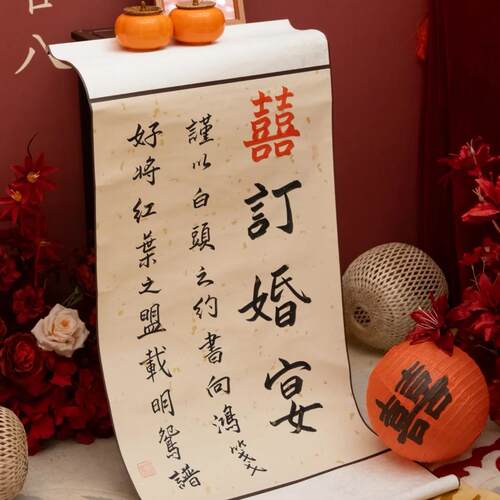 囍訂婚宴
謹以白頭之約書向鴻箋
好將紅葉之盟載明鴛譜
囍
八